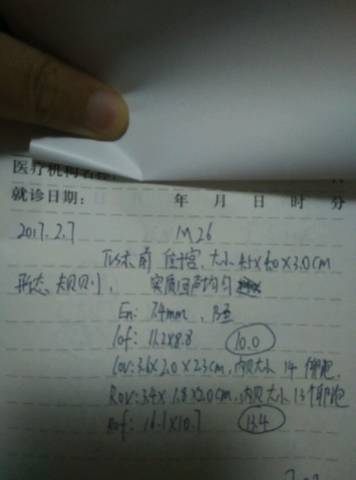 医疗机构名称
就诊日期: 年 月 日 时 分
2017.2.7 M26
TVS示前位子宫、大小4.5x4.0x3.0cm
形态规则、实质回声均匀
En: 7.4mm、B型
lof: 11.2x8.8 10.0
Lov: 3.6x2.0x2.3cm、内见大小14个卵泡、
Rov: 3.4x1.8x2.0cm、内见大小13个卵泡
Rof: 16.1x10.7 13.4